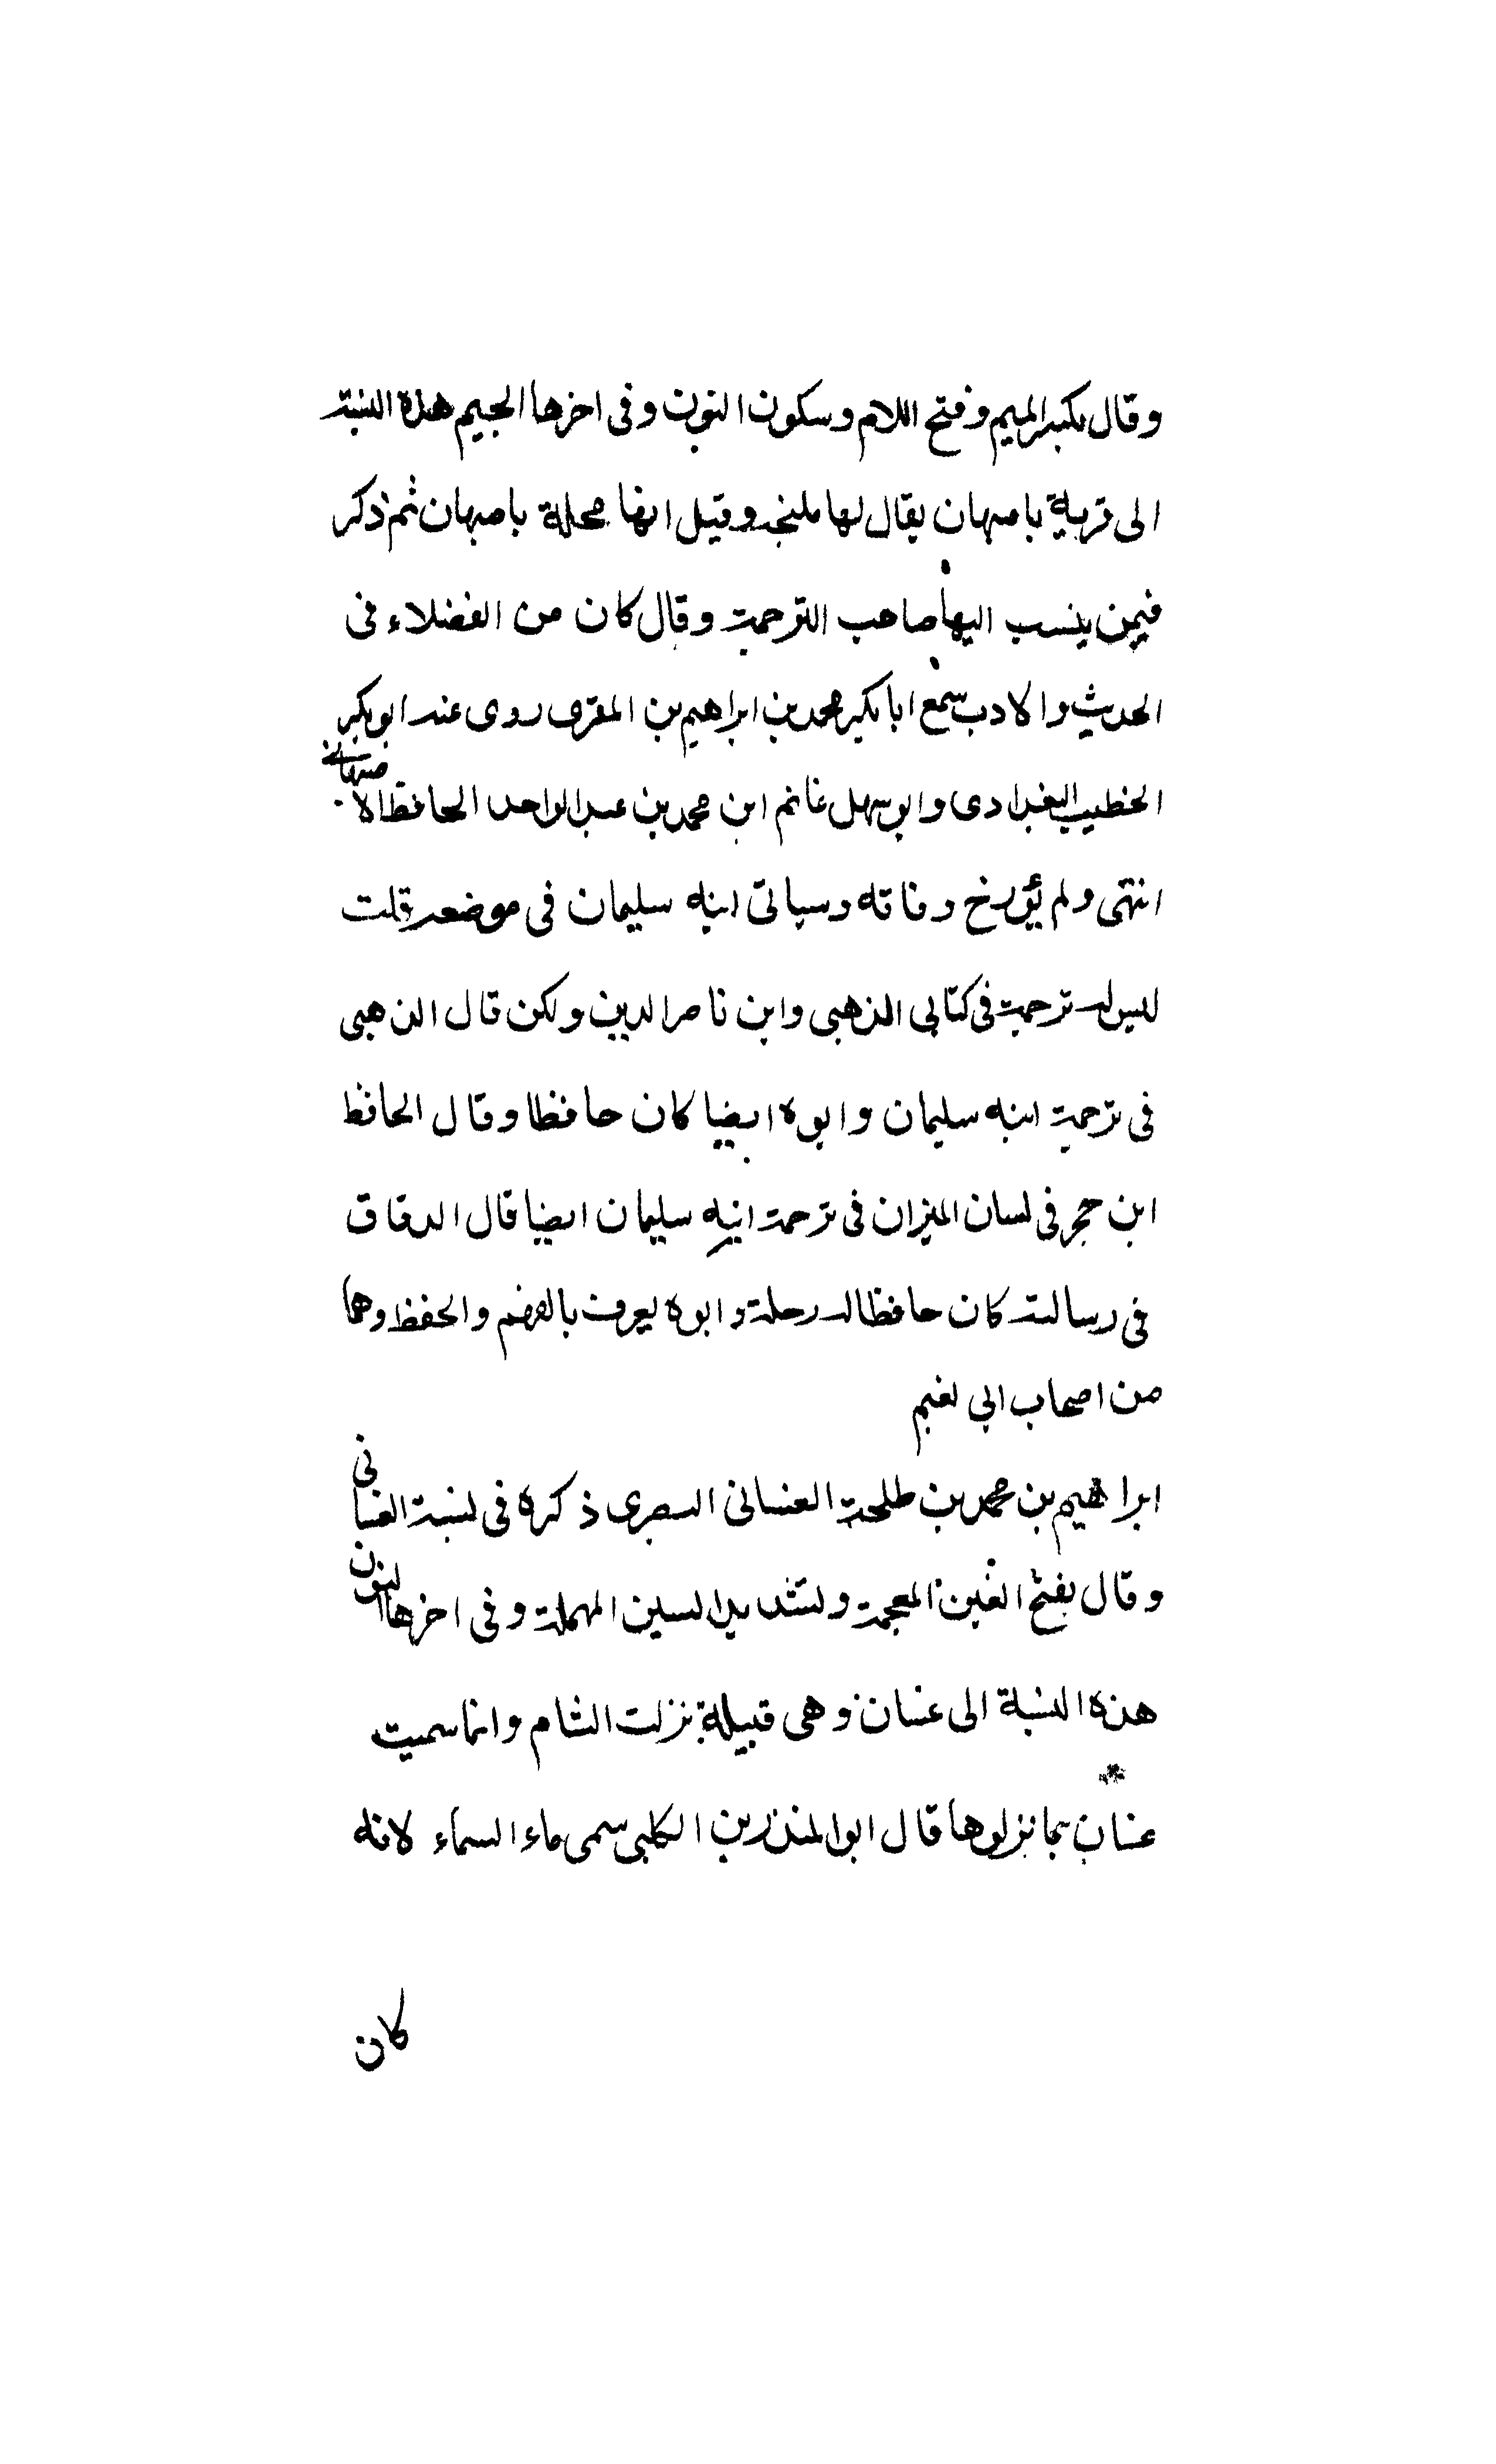 وقال بكسر الميم وفتح اللام وسكون النون وفى اخرها الجيم هذه النسبة
الى قرية باصبهان يقال لها ملنجه وقيل انها محلة باصبهان ثم ذكر
فيمن ينسب اليها صاحب الترجمة وقال كان من الفضلاء فى
الحديث والادب سمع ابا بكر محمد بن ابراهيم بن المقرى روى عنه ابو بكر
الخطيب البغدادى وابو سهل غانم ابن محمد بن عبد الواحد الحافظ الاصبهانى
انتهى ولم يؤرخ وفاته وسياتى ابنه سليمان فى موضعه قلت
ليس له ترجمة فى كتابى الذهبى وابن ناصر الدين ولكن قال الذهبى
فى ترجمة ابنه سليمان وابوه ايضا كان حافظا وقال الحافظ
ابن حجر فى لسان الميزان فى ترجمة ابنه سليمان ايضا قال الدقاق
فى رسالته كان حافظا له رحلة وابوه يعرف بالفهم والحفظ وهما
من اصحاب ابى نعيم
ابراهيم بن محمد بن طلحة الغسانى البصرى ذكره فى نسبة الغسانى
وقال بفتح الغين المعجمة وتشديد السين المهملة وفى اخرها النون
هذه النسبة الى غسان وهى قبيلة نزلت الشام وانما سميت
غسان بما نزلوها قال ابو المنذر بن الكلبى سمى ماء السماء لانه
كان